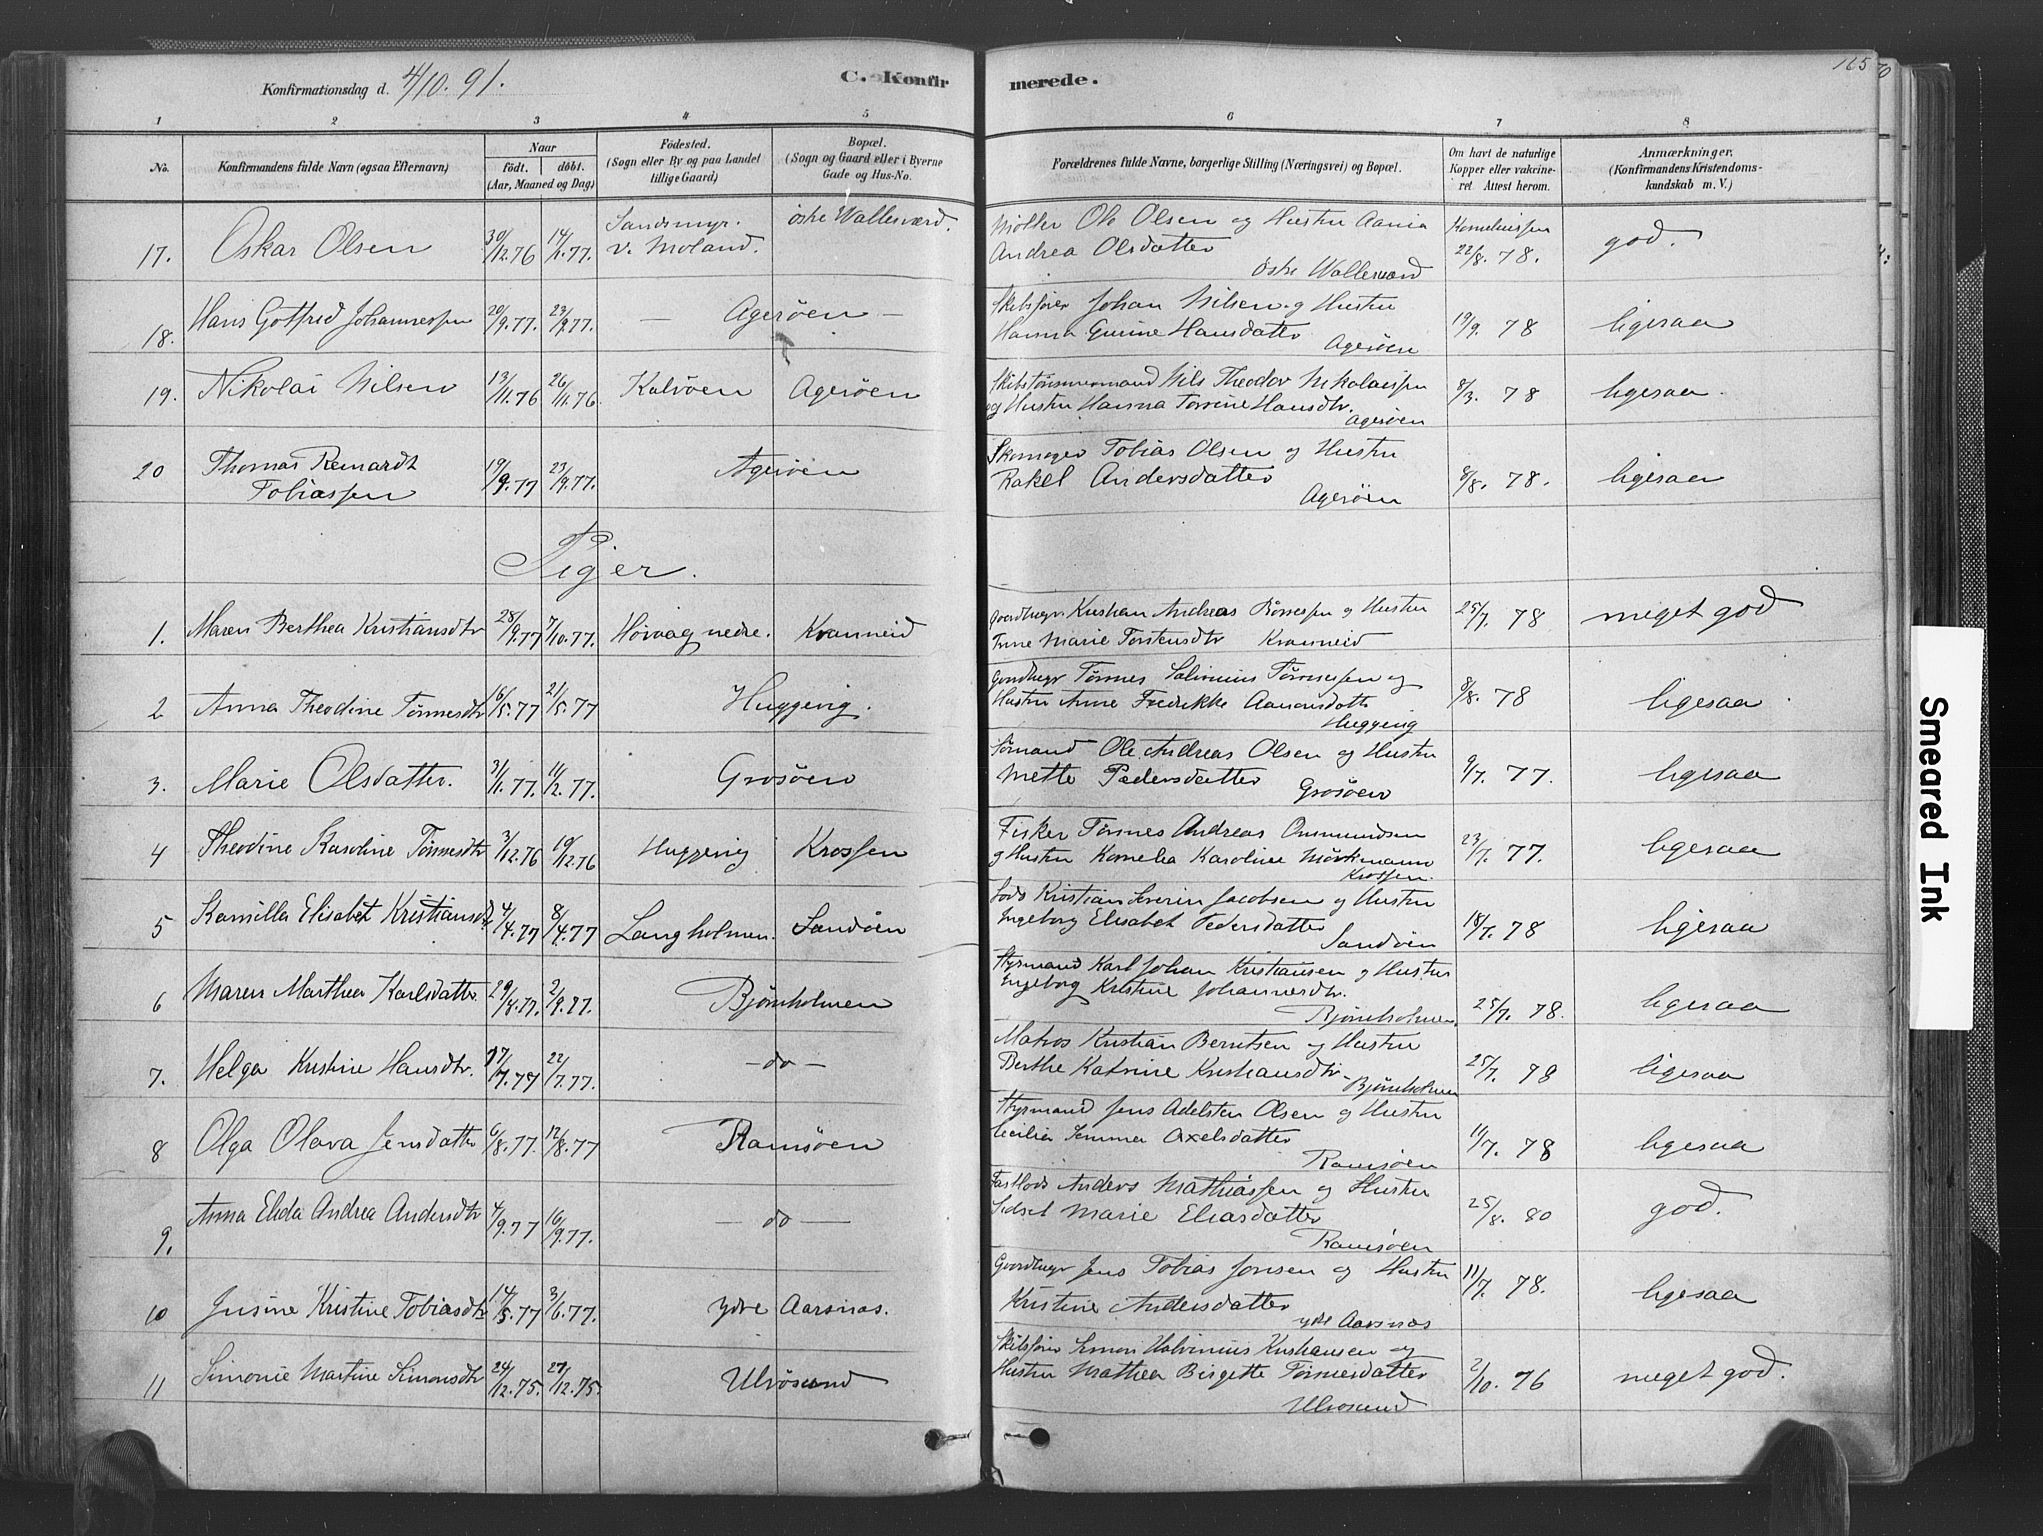 Konfirmationsdag d. 4/10. 91.
C. Konfir merede.
165
1 2 3 4 5 6 7 8
No.
Konfirmandens fulde Navn (ogsaa Efternavn)
Naar
födt. döbt.
(Aar, Maaned og Dag)
Födested.
(Sogn eller By og paa Landet
tillige Gaard)
Bopæl.
(Sogn og Gaard eller i Byerne
Gade og Hus-No.
Forældrenes fulde Navne, borgerlige Stilling (Næringsvei) og Bopæl.
Om havt de naturlige
Kopper eller vakcine-
ret Attest herom.
Anmærkninger.
(Konfirmandens Kristendoms-
kundskab m. V.)
17. Oskar Olsen 30/12.76 14/1.77. Sandsmyr. v. Moland. östre Wallesværd.
Möller Ole Olsen og Hustru
Andrea Olsdatter
östre Wallesværd
22/8. 78. god.
18. Hans Gotfred Johannessen 20/9.77. 23/9.77. — Agerøen —
Skibsfører Johan Nilsen og Hustru
Hanna Gurine Hansdatter
Agerøen
19/9. 78 ligesaa
19. Nikolai Nilsen 13/11.76 26/11.76 Kalvøen Agerøen
Skibstømmermand Nils Theodor Nikolaissen
og Hustru Hanna Torine Hansdtr.
Agerøen
8/3. 78 ligesaa.
20 Thomas Reinardt
Tobiassen 19/9.77 23/9.77. Agerøen
Skomager Tobias Olsen og Hustru
Rakel Andersdatter
Agerøen
8/8. 78. ligesaa
Piger.
1. Maren Berthea Kristiansdtr 28/9.77 7/10.77. Høivaag nedre. Kvanneid
Gaardbrugr Kristian Andreas Tönnessen og Hustru
Anne Marie Torstensdtr Kvanneid
25/7. 78 meget god
2 Anna Theodine Tönnesdtr 16/5.77 21/5.77 Huggevig.
Gaardbrugr Tönnes Salvinius Tönnessen og
Hustru Anne Fredrikke Aanonsdatter
Huggevig
8/8. 78 ligesaa
3. Marie Olsdatter. 31/1.77. 11/2.77. Grosøen
Sømand Ole Andreas Olsen og Hustru
Mette Pedersdatter
Grosøen
9/7. 77. ligesaa
4 Theodine Karoline Tönnesdtr 3/12.76 10/12.76 Huggevig Krossen
Fisker Tönnes Andreas Omsmundsen
og Hustru Kornelia Karoline Mörkmann
Krossen.
23/7. 77. ligesaa
5 Kamilla Elisabet Kristiansdtr 4/4.77 8/4.77 Langholmen. Sandøen
Lods Kristian Severin Jacobsen og Hustru
Ingeborg Elisabet Pedersdatter
Sandøen
18/7. 78 ligesaa
6 Maren Marthea Karlsdatter 29/8.77. 2/9.77. Bjørnholmen
Styrmand Karl Johan Kristiansen og Hustru
Ingeborg Kristine Johannesdtr.
Bjørnholmen
25/7. 78. ligesaa
7. Helga Kristine Hansdtr. 17/7.77 22/7.77. — do —
Matros Kristian Berntsen og Hustru
Berthe Katrine Kristiansdtr
Bjørnholmen
25/7. 78 ligesaa
8 Olga Olava Jensdatter 6/8.77. 12/8.77 Ramsøen
Styrmand Jens Adelsten Olsen og Hustru
Cecilia Axelsdatter
Ramsøen
11/7. 78 ligesaa
9. Anna Elida Andrea Andersdtr 4/9.77 16/9.77. — do —
Fastlods Anders Mathiassen og Hustru
Sidsel Marie Eliasdatter
Ramsøen
25/8. 80 god.
10 Jusine Kristine Tobiasdtr 14/5.77 3/6.77. ydre Aarsnas.
Gaardbrugr Jens Tobias Jonsen og Hustru
Kristine Andersdatter
ydre Aarsnas
11/7. 78. ligesaa
11 Simonie Martine Simonsdtr 24/12.75. 27/12.75 Ulvösund
Skibsfører Simon Halvinius Kristiansen og
Hustru Mathea Birgitte Tönnesdatter
Ulvosund
2/10. 76 meget god.
Smeared Ink